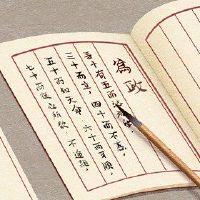 為政
吾十有五而志於學，
三十而立，四十而不惑，
五十而知天命，六十而耳順，
七十而從心所欲，不逾矩。